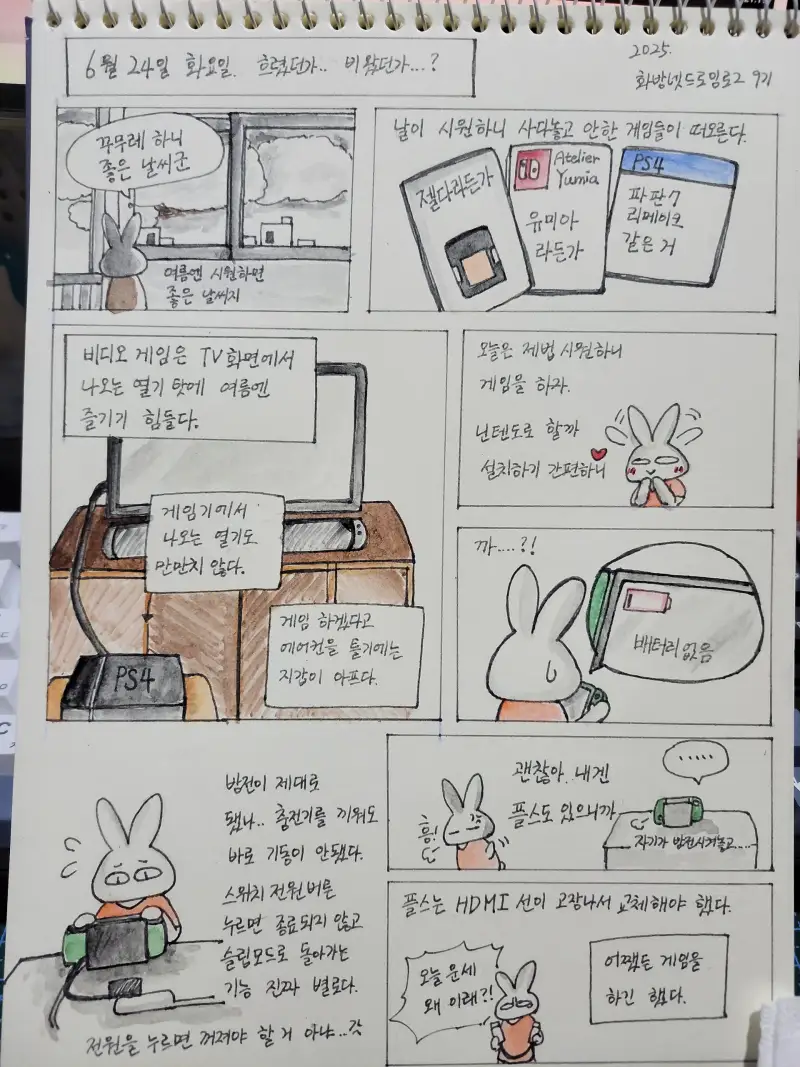 6월 24일 화요일. 흐렸던가.. 비왔던가...?
2025.
화방넷드로잉로그 9기
꾸무레 하니
좋은 날씨군
여름엔 시원하면
좋은 날씨지
날이 시원하니 사다놓고 안한 게임들이 떠오른다.
젤다라든가
Atelier
Yumia
유미아
라든가
PS4
파판7
리메이크
같은 거
비디오 게임은 TV화면에서
나오는 열기 탓에 여름엔
즐기기 힘들다.
게임기에서
나오는 열기도
만만치 않다.
게임 하겠다고
에어컨을 틀기에는
지갑이 아프다.
PS4
오늘은 제법 시원하니
게임을 하자.
닌텐도로 할까
설치하기 간편하니
까....?!
배터리 없음
방전이 제대로
됐나.. 충전기를 끼워도
바로 기동이 안됐다.
스위치 전원버튼
누르면 종료되지 않고
슬립모드로 돌아가는
기능 진짜 별로다.
전원을 누르면 꺼져야 할 거 아냐..갓
괜찮아. 내겐
플스도 있으니까
흥!
.....
자기가 방전시켜놓고....
플스는 HDMI 선이 고장나서 교체해야 했다.
오늘 운세
왜 이래?!
어쨌든 게임을
하긴 했다.